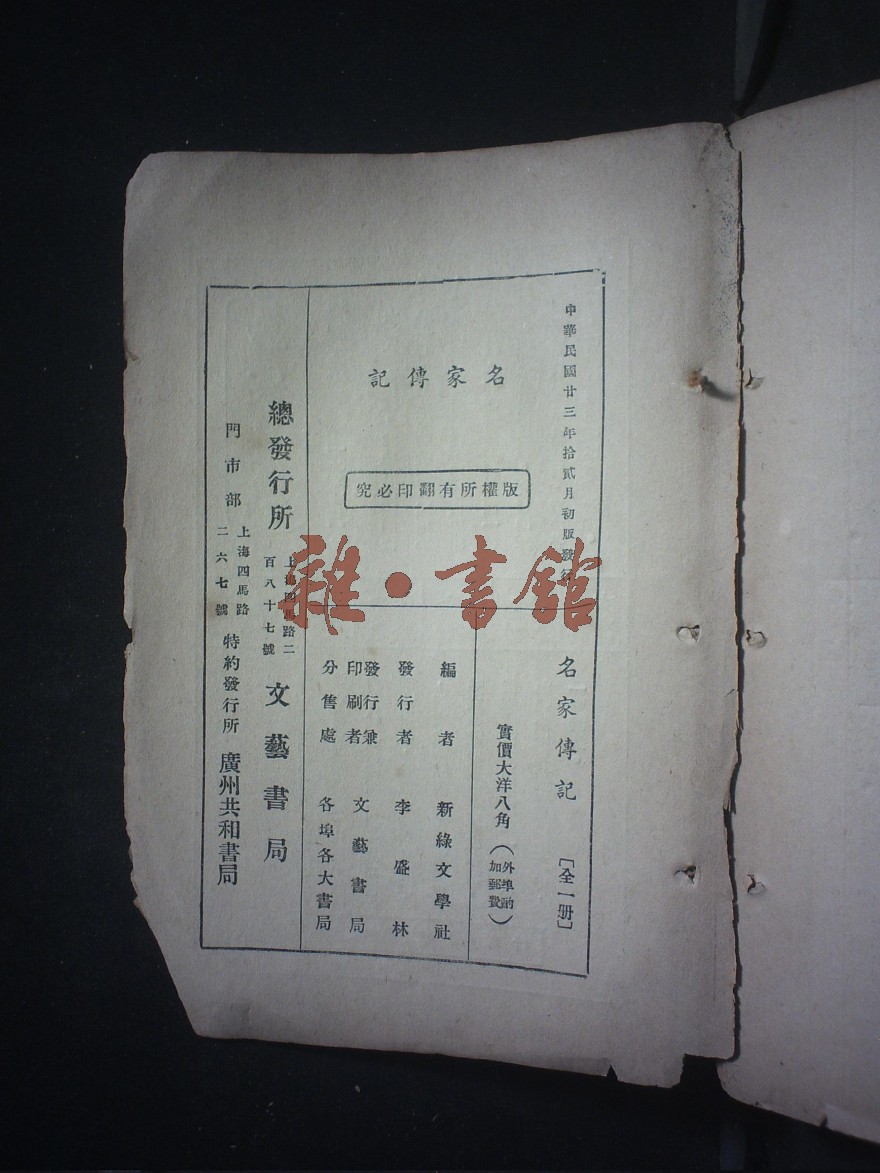 中華民國廿三年拾貳月初版發行
名家傳記
版權所有翻印必究
名家傳記 [全一册]
實價大洋八角 (外埠酌加郵費)
編者 新綠文學社
發行者 李盛林
發行兼印刷者 文藝書局
分售處 各埠各大書局
總發行所 上海四馬路二百八十七號 文藝書局
門市部 上海四馬路二六七號 特約發行所 廣州共和書局
雜·書館